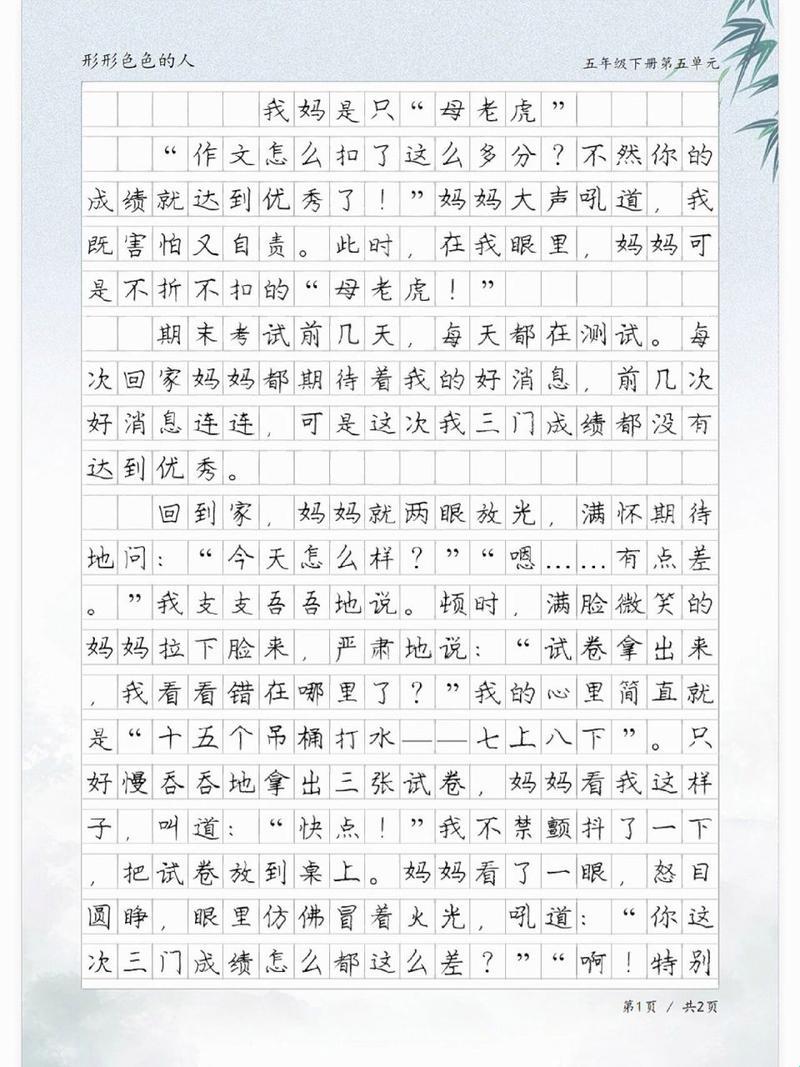 形形色色的人
五年级下册第五单元
我妈是只“母老虎”
“作文怎么扣了这么多分？不然你的
成绩就达到优秀了！”妈妈大声吼道，我
既害怕又自责。此时，在我眼里，妈妈可
是不折不扣的“母老虎！”
期末考试前几天，每天都在测试。每
次回家妈妈都期待着我的好消息，前几次
好消息连连，可是这次我三门成绩都没有
达到优秀。
回到家，妈妈就两眼放光，满怀期待
地问：“今天怎么样？”“嗯……有点差
。”我支支吾吾地说。顿时，满脸微笑的
妈妈拉下脸来，严肃地说：“试卷拿出来
，我看看错在哪里了？”我的心里简直就
是“十五个吊桶打水——七上八下”。只
好慢吞吞地拿出三张试卷，妈妈看我这样
子，叫道：“快点！”我不禁颤抖了一下
，把试卷放到桌上。妈妈看了一眼，怒目
圆睁，眼里仿佛冒着火光，吼道：“你这
次三门成绩怎么都这么差？”“啊！特别
第1页 / 共2页